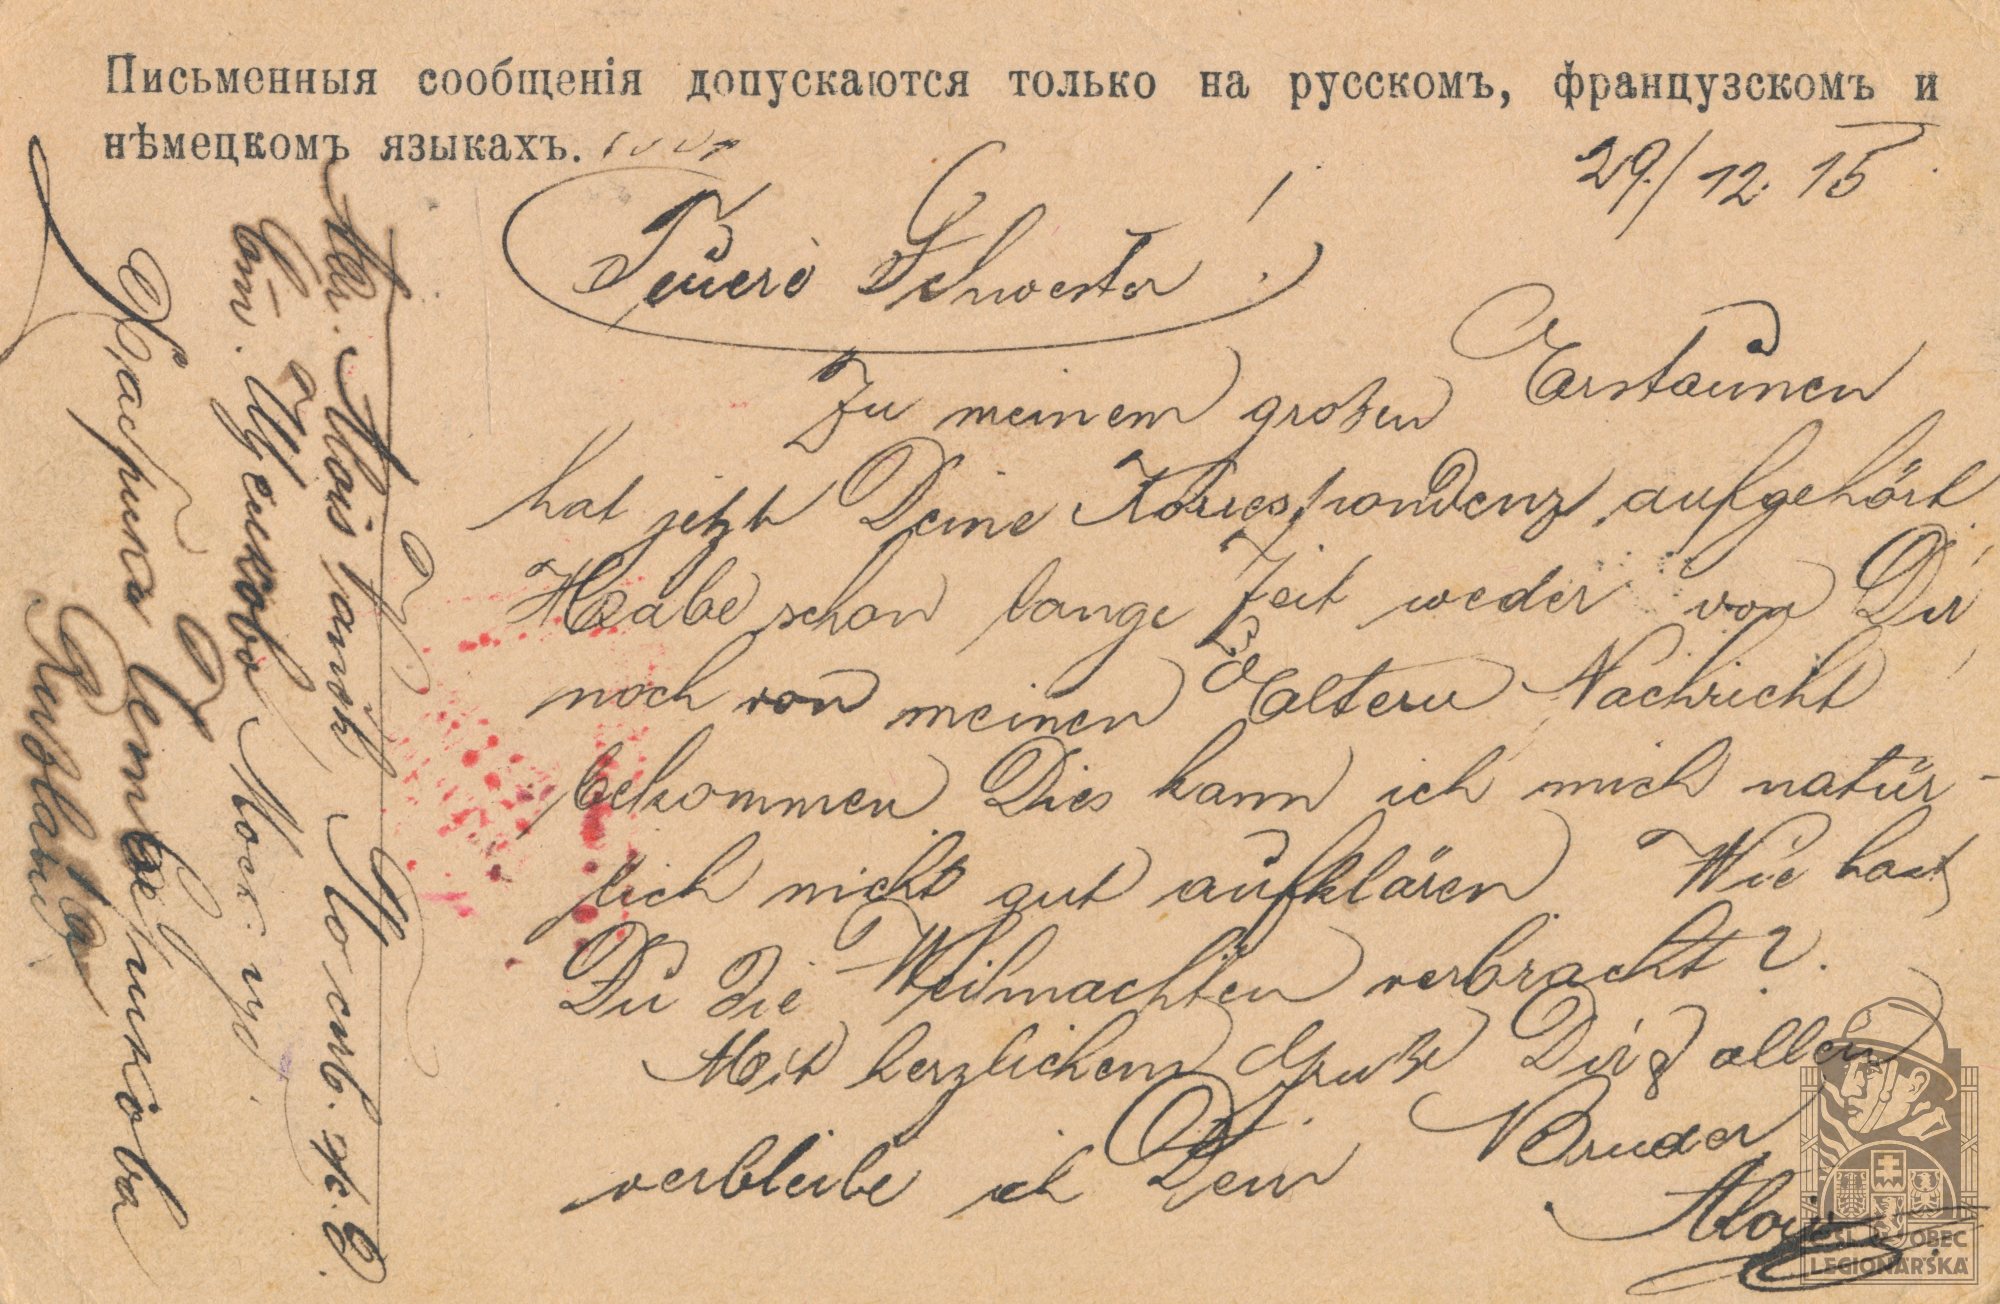 Письменныя сообщенія допускаются только на русскомъ, французскомъ и
нѣмецкомъ языкахъ.
29./12. 15
Teuere Schwester!
Zu meinem großen Erstaunen
hat jetzt Deine Korrespondenz aufgehört
Habe schon lange Zeit weder von Dir
noch von meinen Eltern Nachricht
bekommen Dies kann ich mich natür-
lich nicht gut aufklären Wie hast
Du die Weihnachten verbracht?
Mit herzlichem Gruße Dir & allen
verbleibe ich Dein Bruder
Alois
Alois
ст.
Моск. губ.
Rußland
ČSL. OBEC
LEGIONÁŘSKÁ